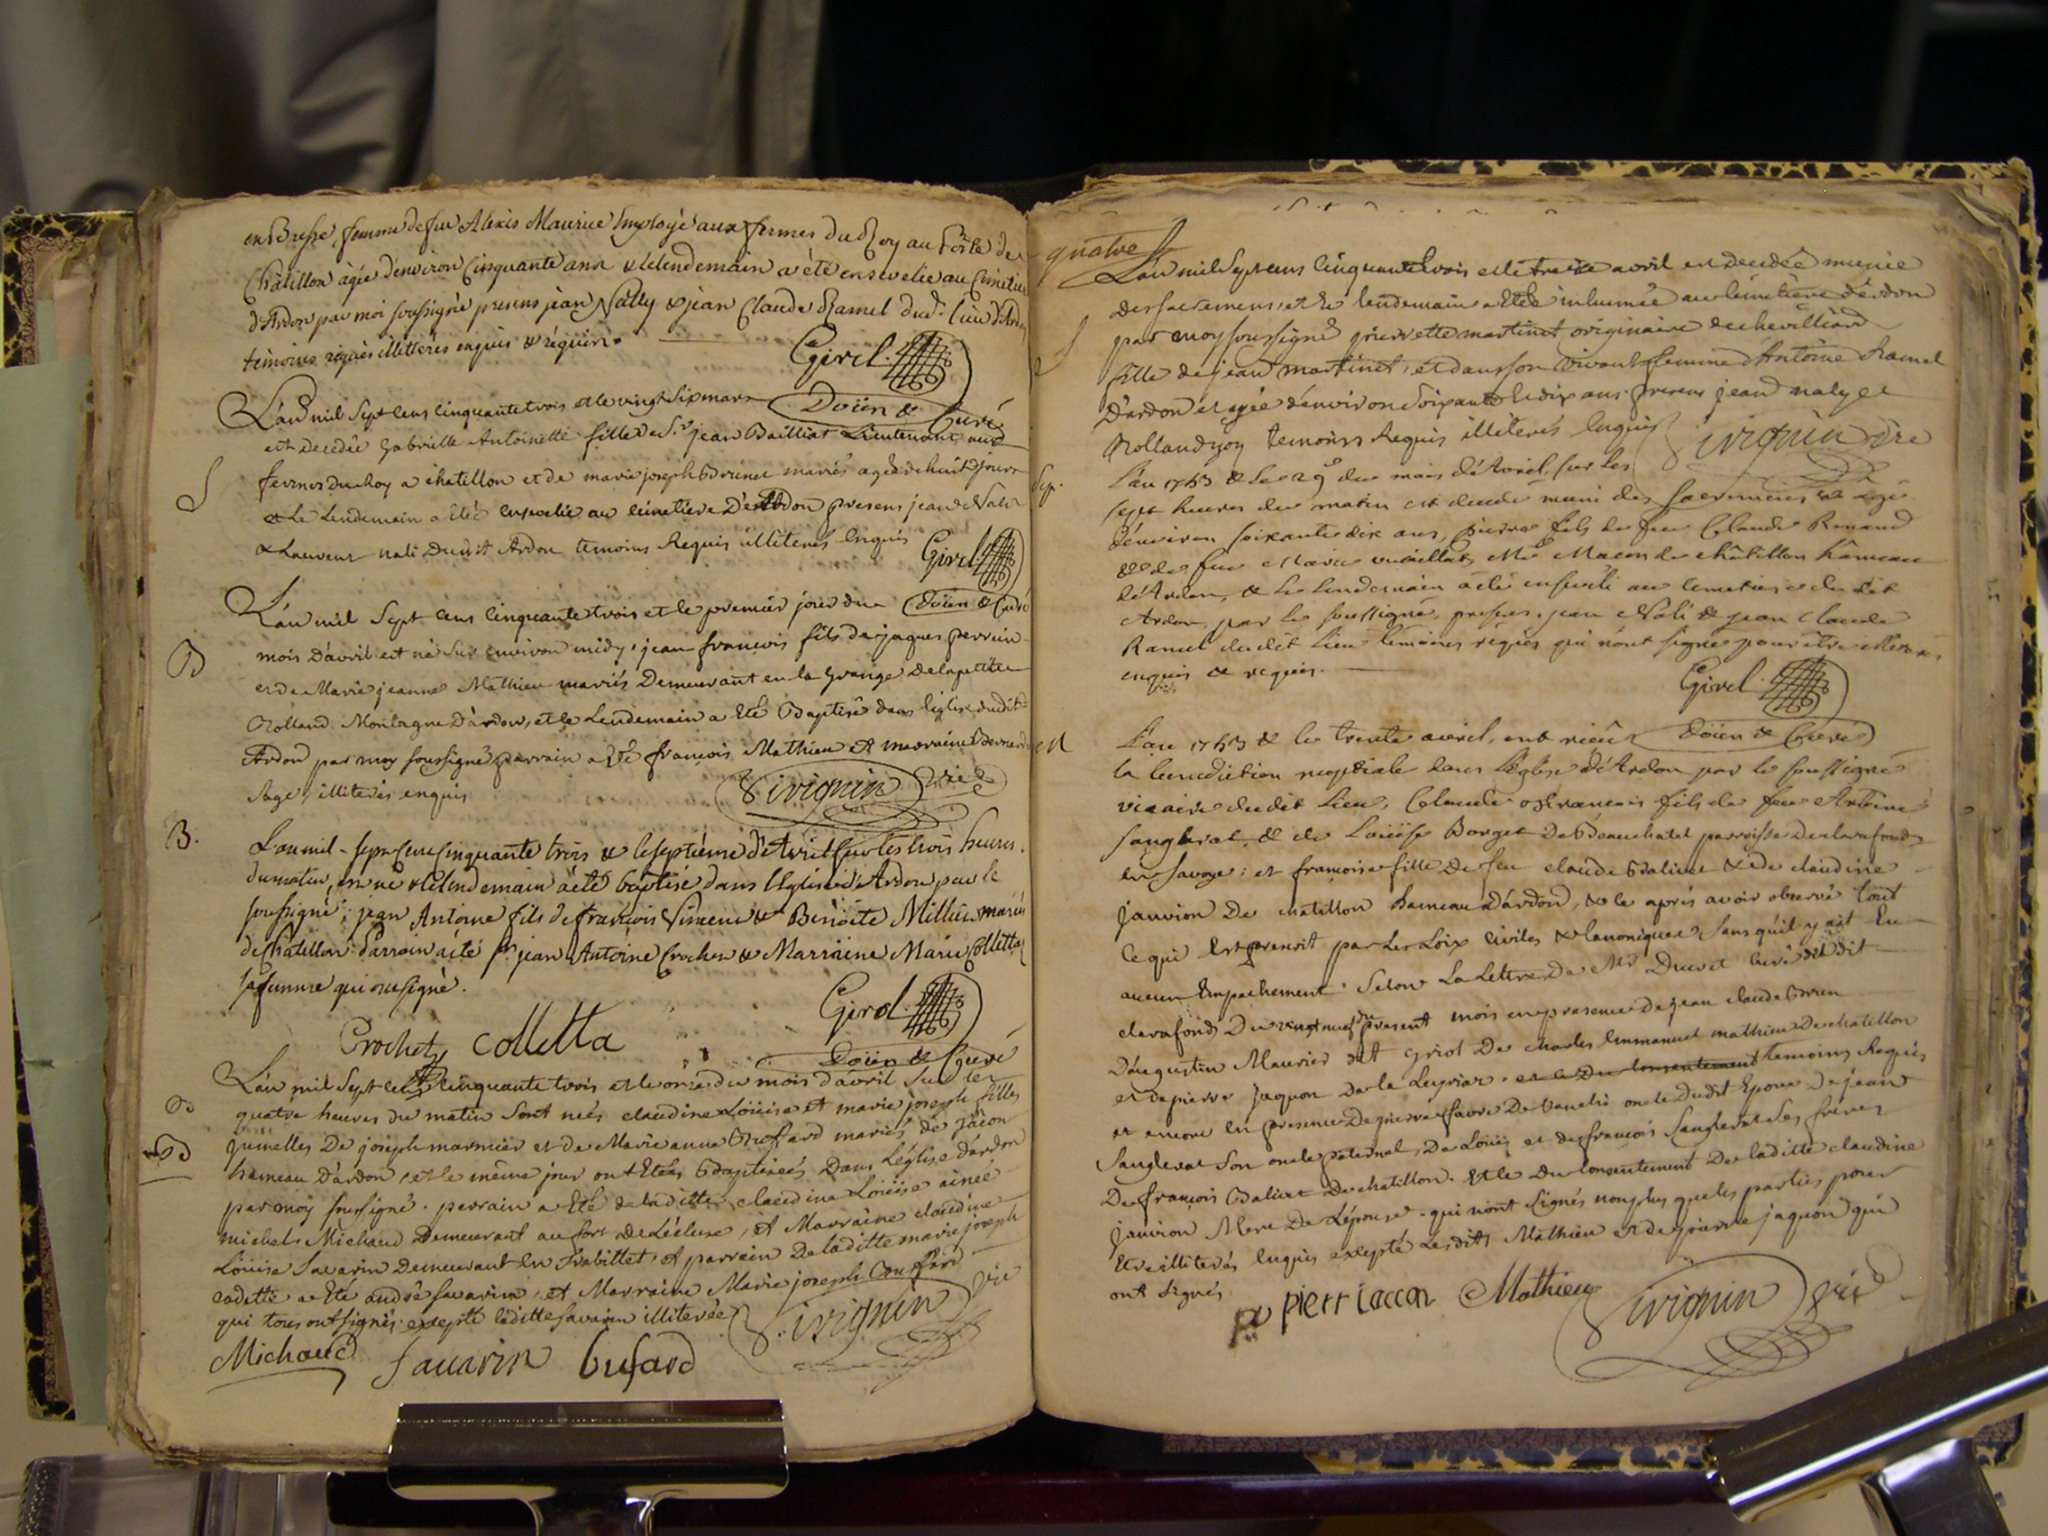 en Bresse, femme de feu Alexis Maurice Employé aux fermes du Roy au Poste de
Châtillon âgée d'environ Cinquante ans & le lendemain a été ensevelie au Cimetiere
d'Ardon par moi soussigné presens jean Nally & jean Claude Ramel dud. lieu d'Ardon
témoins requis illitterés enquis & requis.
Girel.
Doïen & Curé
L'an mil sept cens cinquante trois et le vingt six mars
est decedée Gabrielle Antoinette fille de Sr. jean Bailliat Lieutenant aux
fermes du Roy a chatillon et de marie joseph mariés agée de huit jours
& Le Lendemain a été ensevelie au cimetiere D'Ardon presens jean Nali
& Laurent nali Dudit Ardon temoins Requis illiterés Enquis
S
Girel
Doïen & Curé
L'an mil Sept cens cinquante trois et le premier jour du
B
mois d'avril est né Sur environ midy, jean francois fils de jaques perrin
et de Marie jeanne Mathieu mariés Demeurant en la Grange de la petite
Rolland Montagne D'ardon, et le Lendemain a été Baptisé dans l'église dudit
Ardon par moy soussigné parrain a été francois Mathieu et marraine bernarde
Sage, illiterés enquis
Sivignin vire
B.
L'an mil-sept Cens Cinquante trois & le septième d'Avril sur les trois heures
du matin, est né & le lendemain a été baptisé dans l'Eglise d'Ardon par le
soussigné, jean Antoine fils de francois Vincent & Benoite Millier mariés
de Châtillon. Parrain a été Sr. jean Antoine Crochet & Marraine Marie Colletta
sa femme qui ont signé.
Girel.
Crochet colletta
Doïen & Curé
L'an mil Sept cens cinquante trois et le onze du mois d'avril Sur les
quatre heures du matin Sont nées claudine Loüise et marie joseph filles
B
jumelles De joseph marmier et de Marie anne Bussard mariés de jacon
hameau D'ardon, et le même jour ont Etées Baptisées Dans l'église d'ardon
par moy soussigné. parrain a Eté de laditte claudine Loüise ainée
michel Michaud Demeurant au fort de Lécluse, et Marraine claudine
Loüise Savarin Demeurant en Trabillet, et parrain De laditte marie joseph
cadette a Eté andré Savarin, et Marraine Marie joseph
qui tous ont signés excepté laditte Savarin illiterée
Sivignin vire
Michaud Savarin busard
quatre
L'an mil Sept cens Cinquante trois et le treize avril est decedée munie
des sacremens, et le lendemain a Eté inhumée au cimetiere d'ardon
S
par moy soussigné pierrette martinet originaire de chevilliard
fille de jean martinet, et dans son vivant femme d'Antoine Ramel
D'ardon et agée d'environ Soixante et dix ans. presens jean naly et
Rolland temoins Requis illiterés Enquis
Sivignin vire
Sep.
L'an 1753 & le 29e du mois d'Avril sur les
sept heures du matin est decedé muni des sacremens & agé
d'environ soixante dix ans, Pierre fils de feu Claude Renaud
& de feue Marie vuaillat, Me Macon de châtillon hâmeau
d'Ardon, & le lendemain a été enseveli au cemetiere du dit
Ardon, par le soussigné, presens, jean Nali & jean Claude
Ramel dudit Lieu temoins requis qui n'ont signé pour être illiterés,
enquis & requis.
Girel.
Doïen & Curé
M
L'an 1753 & le trente avril, ont reçûs
la benediction nuptiale dans l'église d'Ardon par le soussigné
vicaire dudit Lieu, Claude francois fils de feu Antoine
Sanglerat, & de Loüise Borget De Beauchatel paroisse de clarafond
en Savoye; et francoise fille De feu claude Balivet & De claudine
janvion De chatillon hameau d'ardon, & le aprés avoir observé tout
ce qui Est prescrit par Les Loix Civiles & Canoniques Sans qu'il y ait Eu
aucun Empechement Selon La Lettre De Mr Ducret Curé dudit
clarafond Du vingt neuf du present mois en presence de jean claude
D'augustin Maurier dit Griot De charles Emmanuel mathieu De chatillon
et de pierre jaquon de la et le Du consentement temoins Requis
et encore En presence De pierre favre De oncle Dudit Epoux De jean
Sanglerat Son oncle paternel, De Loüis et de francois Sanglerat Ses freres
De francois Balivet De chatillon. Et le Du consentement De laditte claudine
janvion Mere De l'épouse. qui n'ont Signés non plus que les parties pour
Etre illiterés Enquis excepté Lesdits Mathieu et de pierre jaquon qui
ont signés
pierr iaccon Mathieu Sivignin vire